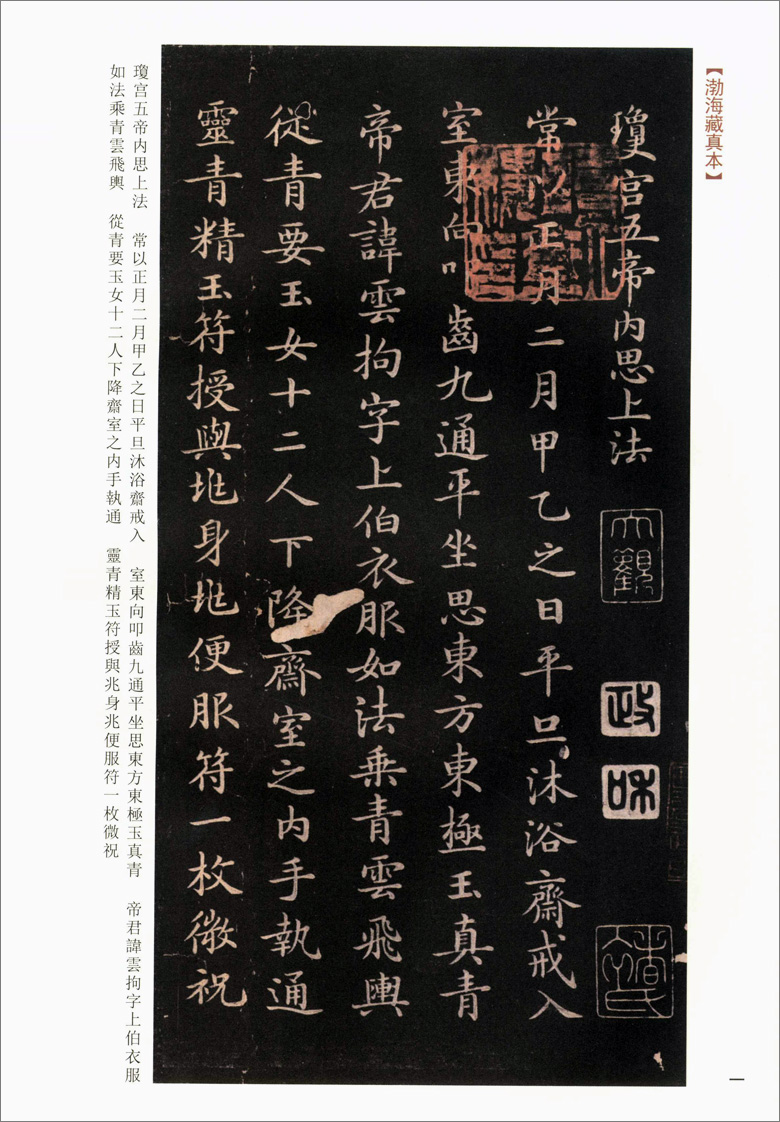 【渤海藏真本】
瓊宮五帝内思上法
常以正月二月甲乙之日平旦沐浴齋戒入
室東向叩齒九通平坐思東方東極玉真青
帝君諱雲拘字上伯衣服如法乗青雲飛輿
從青要玉女十二人下降齋室之内手執通
靈青精玉符授與兆身兆便服符一枚微祝
大觀
政和
瓊宮五帝内思上法 常以正月二月甲乙之日平旦沐浴齋戒入 室東向叩齒九通平坐思東方東極玉真青 帝君諱雲拘字上伯衣服
如法乘青雲飛輿 從青要玉女十二人下降齋室之内手執通 靈青精玉符授與兆身兆便服符一枚微祝
一